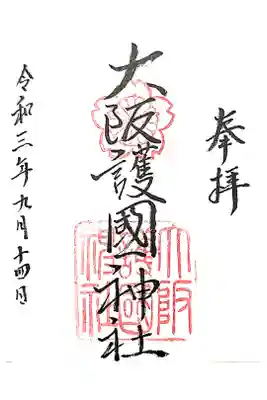 奉拝
大阪護國神社
令和三年九月十四日